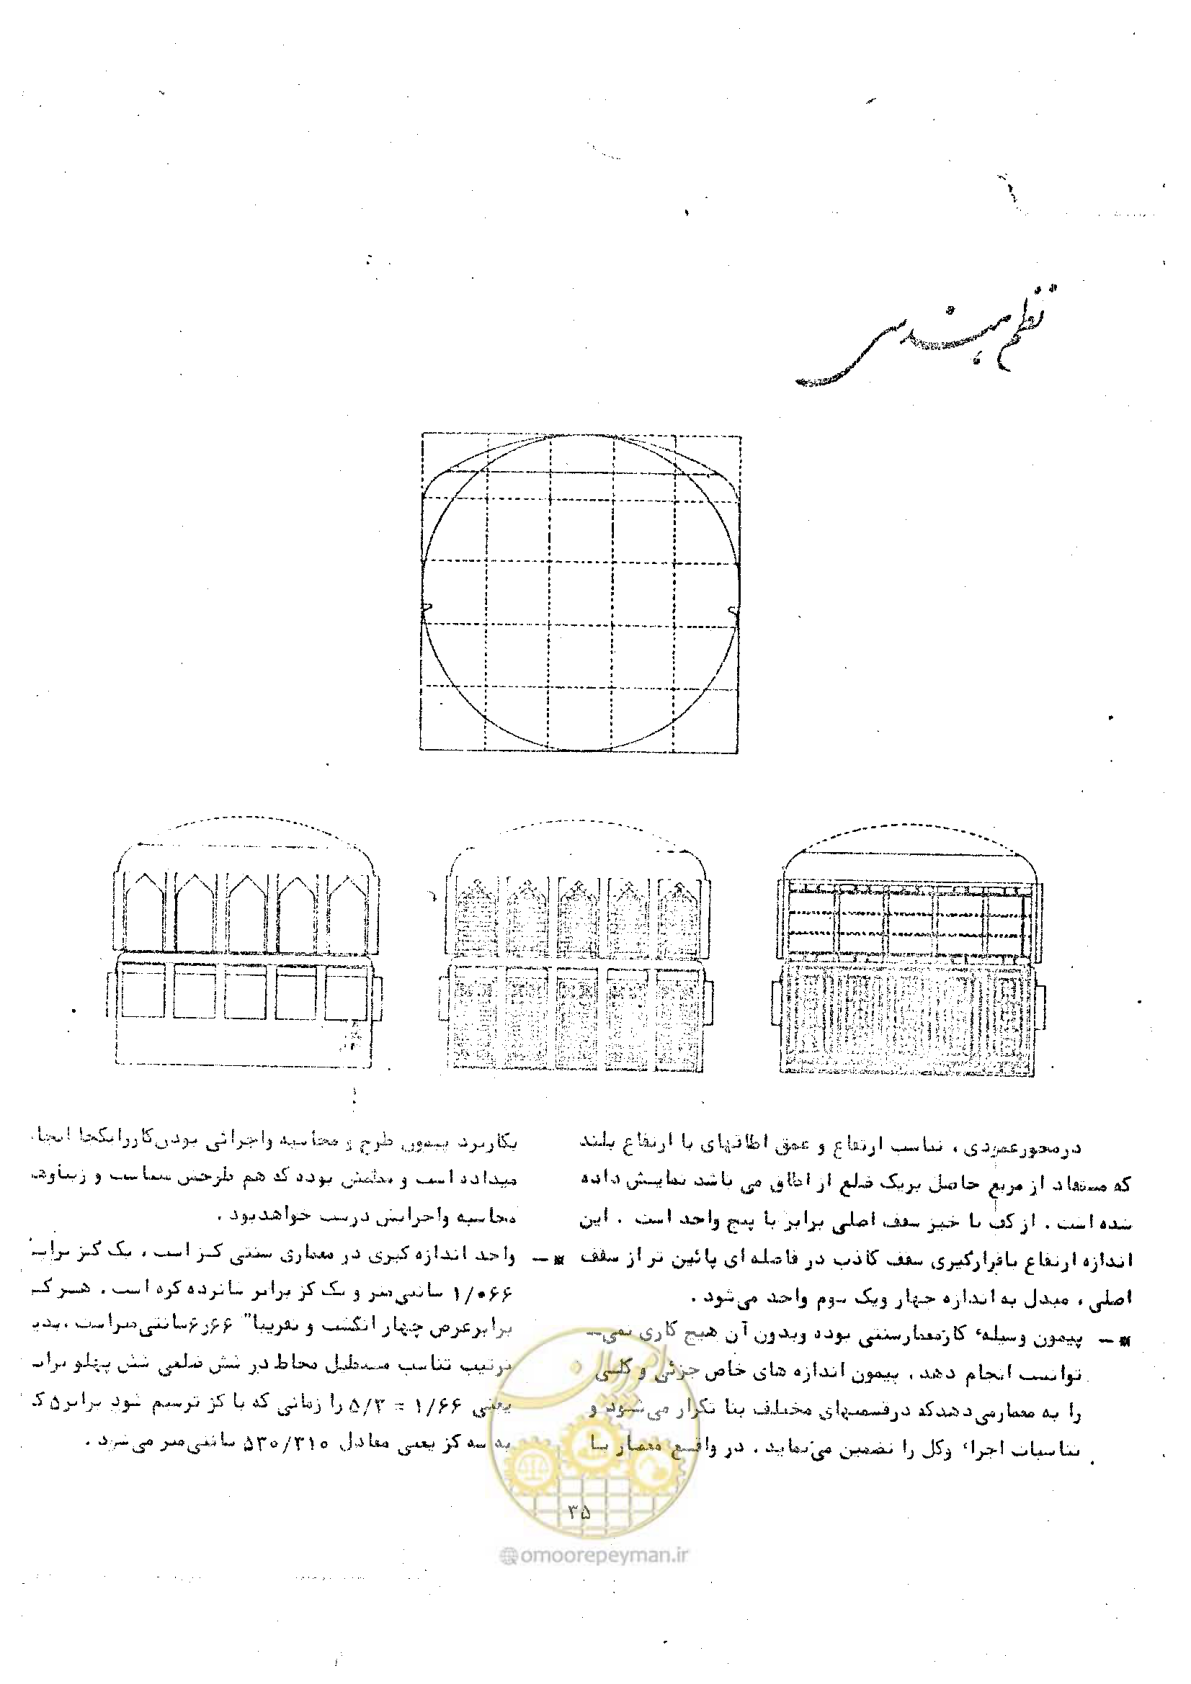 نظم هندسی
درمحورعمودی ، تناسب ارتفاع و عمق اطاقهای با ارتفاع بلند
که مستفاد از مربع حاصل بریک ضلع از اطاق می باشد نمایش داده
شده است . از کف تا خیز سقف اصلی برابر با پنج واحد است . این
اندازه ارتفاع باقرارگیری سقف کاذب در فاصله ای پائین تر از سقف
اصلی ، مبدل به اندازه چهار ویک سوم واحد می‌شود .
*ـ پیمون وسیلهٔ کارمعمارسنتی بوده وبدون آن هیچ کاری نمی‌ـ
توانست انجام دهد ، پیمون اندازه های خاص جزئی و کلی
را به معمارمی‌دهدکه درقسمتهای مختلف بنا تکرار می‌شود و
تناسبات اجزاء وکل را تضمین می‌نماید . در واقع معمار بـا
بکاربرد پیمون طرح و محاسبه واجرائی بودن‌کاررایکجا انجا
میداده است و مطمئن بوده که هم طرحش متناسب و زیبا‌وهـ
محاسبه واجرایش درست خواهدبود .
*ـ واحد اندازه گیری در معماری سنتی گـز است ، یک گـز برابـ
۱/۰۶۶ سانتی‌متر و یک گز برابر شانزده گره است . هـر گـ
برابرعرض چهار انگشت و تقریبا" ۶ر۶۶سانتی‌متراست ،بدیـ
ترتیب تناسب مستطیل محاط در شش ضلعی شش پهلو برابـ
یعنی ۱/۶۶ = ۵/۳ را زمانی که با گز ترسیم شود برابر۵ گـ
به سه گز یعنی معادل ۵۳۰/۳۱۰ سانتی‌متر می‌شود .
۳۵
@omoorepeyman.ir